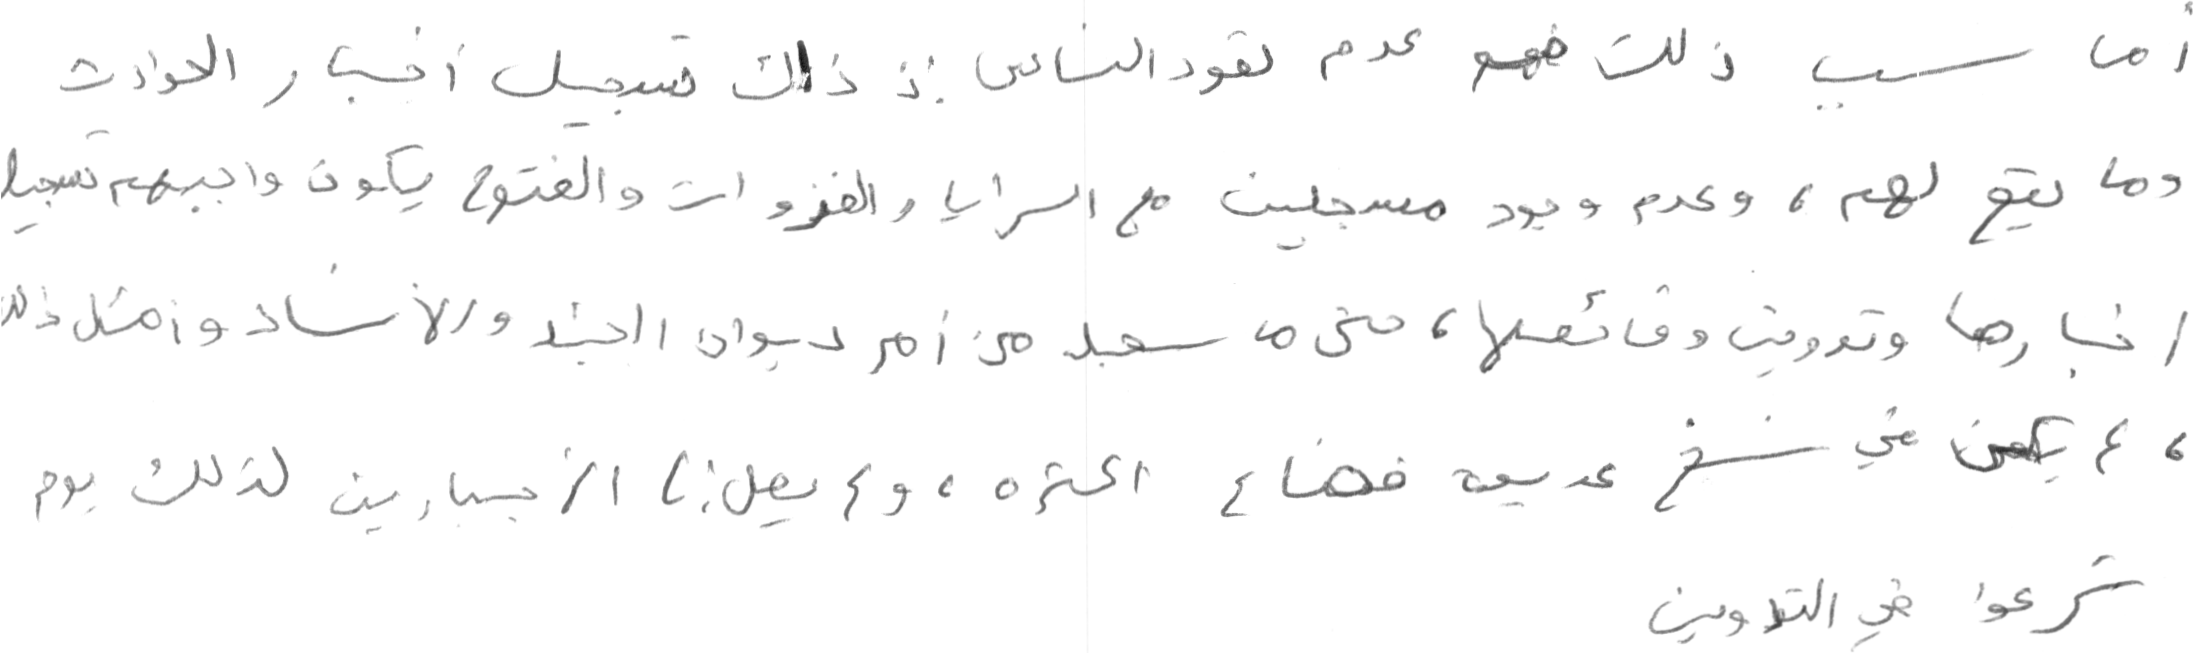 أما سبب ذلك فهو عدم تعود الناس إذ ذاك تسجيل أخبار الحوادث
وما يقع لهم ، وعدم وجود مسجلين مع السرايا والغزوات والفتوح يكون واجبهم تسجيل
اخبارها وتدوين وقائعها ، حتى ما سجل من أمر ديوان الجند والأنساب وأمثال ذلك
، لم يكن في نسخ عديدة فضاع اكثره ، ولم يصل إلى الأخباريين لذلك يوم
شرعوا في التدوين